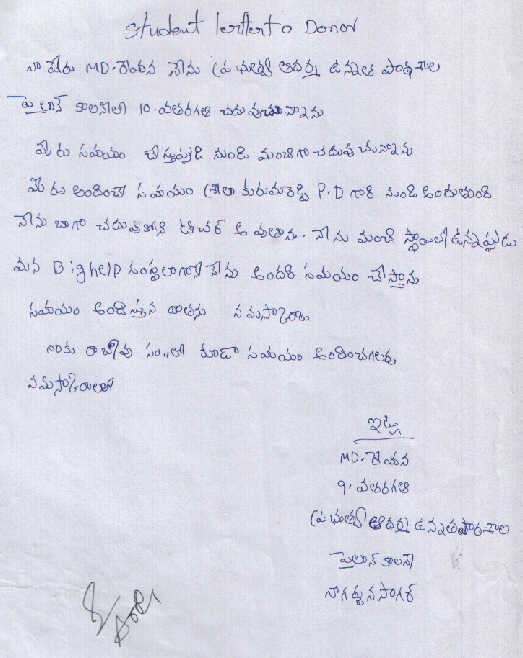 Student letter to Donor
నా పేరు MD. నేను ప్రభుత్వ ఆదర్శ ఉన్నత పాఠశాల
పైలాన్ కాలనీలో 10వ తరగతి చదువుచున్నాను
మీరు సహాయం నుండి మంచిగా చదువుచున్నాను
మీరు అందించే సహాయం P.D గారి నుండి అందుతుంది
నేను బాగా చదువుకొని టీచర్ అవుతాను. నేను మంచి స్థాయిలో ఉన్నప్పుడు
మన Bighelp సంస్థలాగానే నేను అందరికి సహాయం చేస్తాను
సహాయం దాతకు నమస్కారం
నాకు రాబోవు సం॥లో కూడా సహాయం అందించగలరు
నమస్కారాలతో
ఇట్లు
MD.
9వ తరగతి
ప్రభుత్వ ఆదర్శ ఉన్నత పాఠశాల
పైలాన్ కాలనీ
నాగార్జున సాగర్